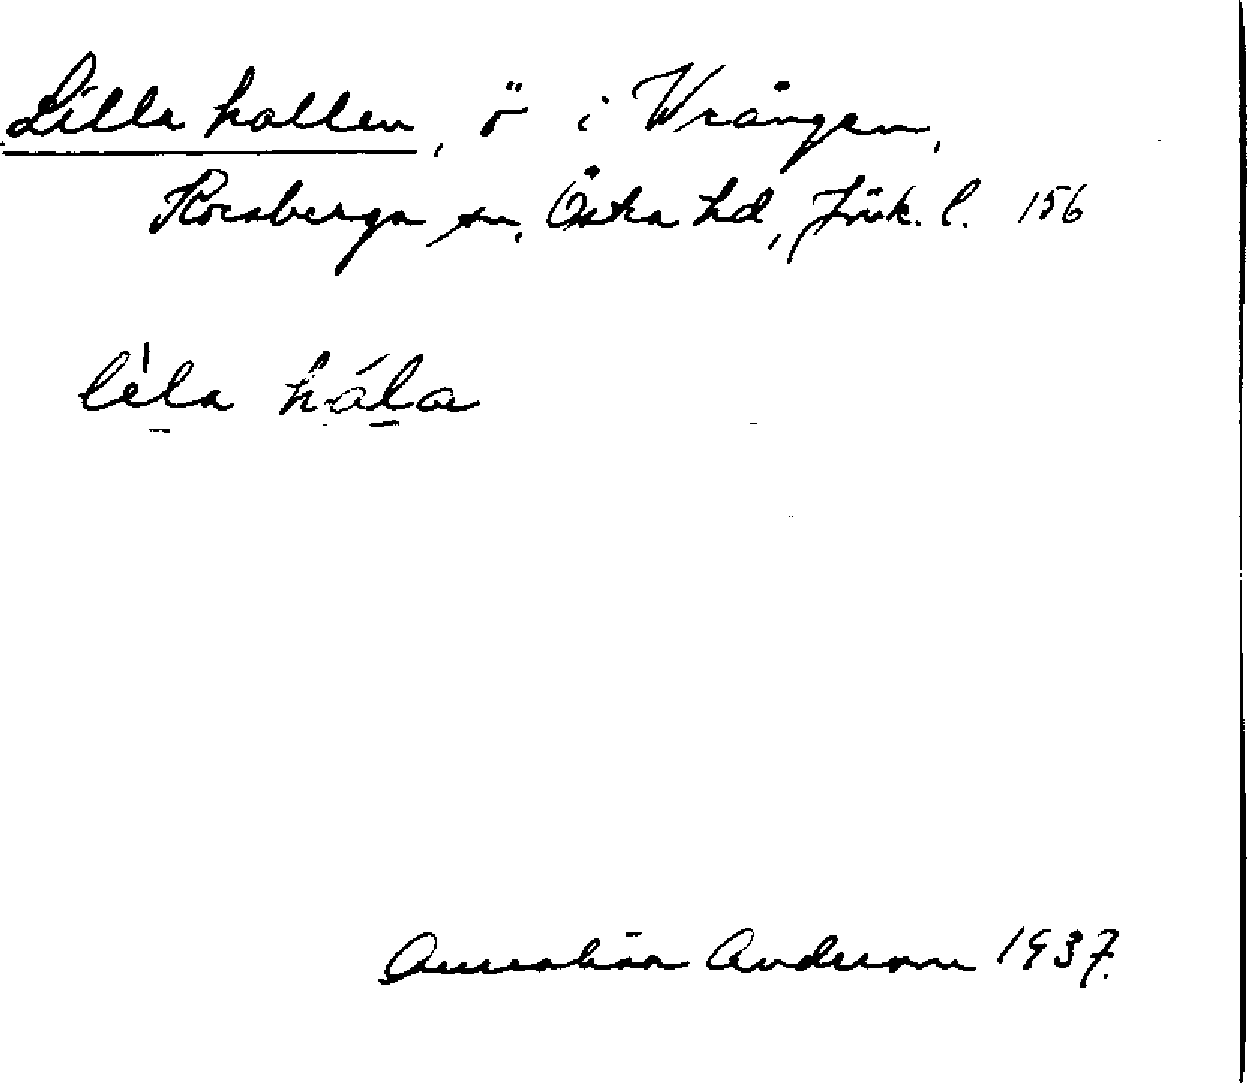 Lilla hallen, ö i Vrången,
Korsberga sn, Östra hd, Jönk. l. 156
lèla hála
Andersson 1937.